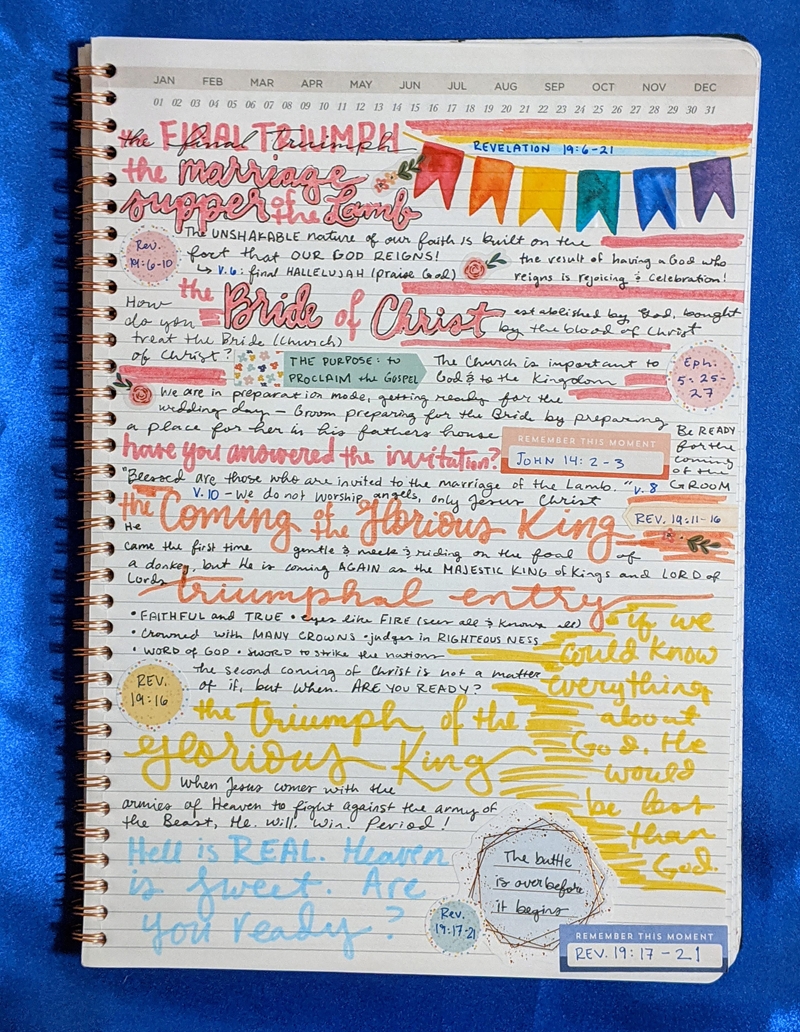 JAN FEB MAR APR MAY JUN JUL AUG SEP OCT NOV DEC
01 02 03 04 05 06 07 08 09 10 11 12 13 14 15 16 17 18 19 20 21 22 23 24 25 26 27 28 29 30 31
the FINAL TRIUMPH
the final triumph
REVELATION 19:6-21
the marriage
supper of the Lamb
Rev.
19:6-10
The UNSHAKABLE nature of our faith is built on the
fact that OUR GOD REIGNS!
↳ v.6: final HALLELUJAH (praise God)
the result of having a God who
reigns is rejoicing & celebration!
the Bride of Christ
established by God, bought
by the blood of Christ
How
do you
treat the Bride (Church)
of Christ?
THE PURPOSE: to
PROCLAIM the GOSPEL
The Church is important to
God & to the Kingdom
Eph.
5:25-
27
We are in preparation mode, getting ready for the
wedding day - Groom preparing for the Bride by preparing
a place for her in his fathers house
REMEMBER THIS MOMENT
JOHN 14:2-3
Be READY
for the
coming
of the
GROOM
have you answered the invitation?
"Blessed are those who are invited to the marriage of the Lamb." v.8
v.10 - We do not worship angels, only Jesus Christ
the Coming of the Glorious King
REV. 19:11-16
He
came the first time gentle & meek & riding on the foal of
a donkey, but He is coming AGAIN as the MAJESTIC KING of Kings and LORD of
Lords
triumphal entry
• FAITHFUL and TRUE • eyes like FIRE (sees all & knows all)
• Crowned with MANY CROWNS • judges in RIGHTEOUSNESS
• WORD OF GOD • SWORD to strike the nations
REV.
19:16
The second coming of Christ is not a matter
of if, but when. ARE YOU READY?
if we
could know
everything
about
God, He
would
be less
than
God.
the triumph of the
glorious King
When Jesus comes with the
armies of Heaven to fight against the army of
the Beast, He. Will. Win. Period!
Hell is REAL. Heaven
is sweet. Are
you ready?
The battle
is over before
it begins
Rev.
19:17-21
REMEMBER THIS MOMENT
REV. 19:17-21